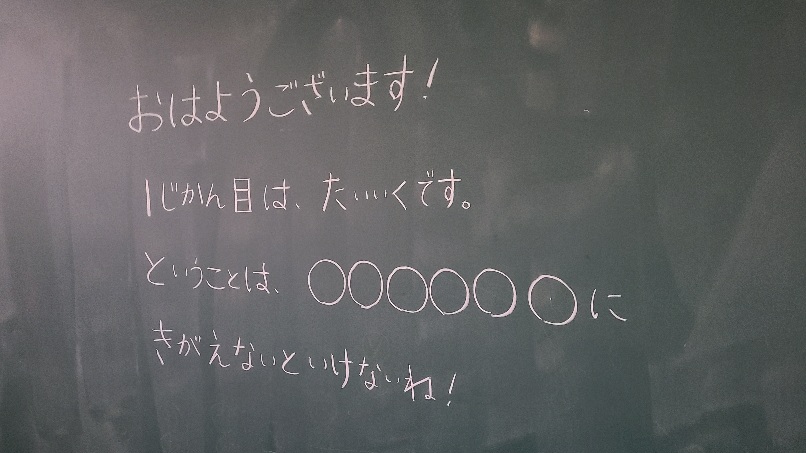 おはようございます!
1じかん目は、たいいくです。
ということは、○○○○○○に
きがえないといけないね!